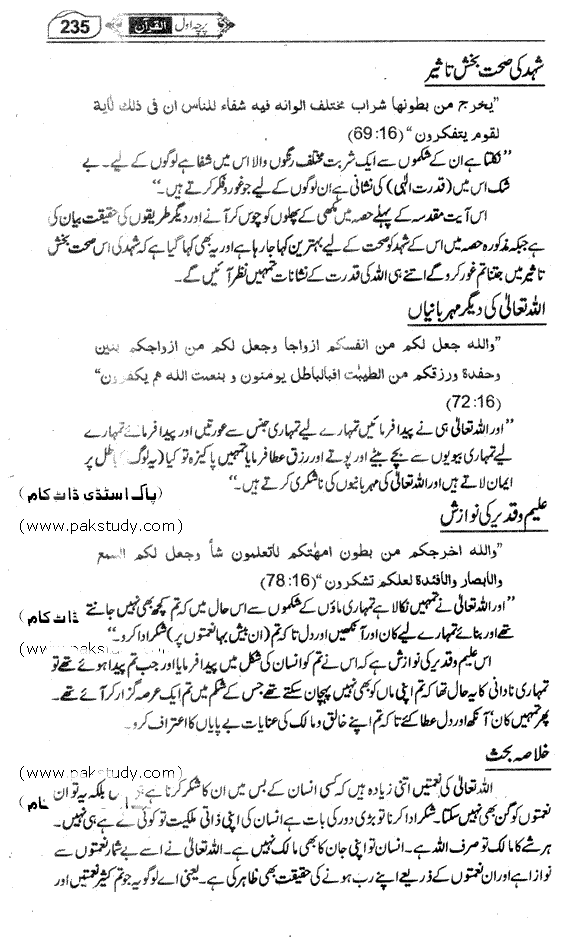 235 القرآن پرچہ اول
شہد کی صحت بخش تاثیر
”یخرج من بطونها شراب مختلف الوانه فیه شفاء للناس ان فی ذلك لأیة
لقوم یتفکرون“ (69:16)
”نکلتا ہے ان کے شکموں سے ایک شربت مختلف رنگوں والا اس میں شفا ہے لوگوں کے لیے۔ بے
شک اس میں (قدرت الٰہی) کی نشانی ہے ان لوگوں کے لیے جو غور و فکر کرتے ہیں۔“
اس آیت مقدسہ کے پہلے حصہ میں مکھی کے پھلوں کو چوس کر آنے اور دیگر طریقوں کی حقیقت بیان کی
ہے جبکہ مذکورہ حصہ میں اس کے شہد کو صحت کے لیے بہترین کہا جا رہا ہے اور یہ بھی کہا گیا ہے کہ شہد کی اس صحت بخش
تاثیر میں جتنا تم غور کرو گے اتنے ہی اللہ کی قدرت کے نشانات تمہیں نظر آئیں گے۔
اللہ تعالیٰ کی دیگر مہربانیاں
”والله جعل لکم من انفسکم ازواجا وجعل لکم من ازواجکم بنین
وحفدة ورزقکم من الطیبٰت افبالباطل یومنون و بنعمت الله هم یکفرون“
(72:16)
”اور اللہ تعالیٰ ہی نے پیدا فرمائیں تمہارے لیے تمہاری جنس سے عورتیں اور پیدا فرمائے تمہارے
لیے تمہاری بیویوں سے بچے بیٹے اور پوتے اور رزق عطا فرمایا تمہیں پاکیزہ تو کیا (یہ لوگ) باطل پر
ایمان لاتے ہیں اور اللہ تعالیٰ کی مہربانیوں کی ناشکری کرتے ہیں۔“
(پاک اسٹڈی ڈاٹ کام)
علیم و قدیر کی نوازش
(www.pakstudy.com)
”والله اخرجکم من بطون امهتکم لاتعلمون شأ وجعل لکم السمع
والأبصار والأفئدة لعلکم تشکرون“ (78:16)
”اور اللہ تعالیٰ نے تمہیں نکالا ہے تمہاری ماؤں کے شکموں سے اس حال میں کہ تم کچھ بھی نہیں جانتے
ڈاٹ کام)
تھے اور بنائے تمہارے لیے کان اور آنکھیں اور دل تا کہ تم (ان بیش بہا نعمتوں پر) شکر ادا کرو۔“
(www.pakstudy.com)
اس علیم و قدیر کی نوازش ہے کہ اس نے تم کو انسان کی شکل میں پیدا فرمایا اور جب تم پیدا ہوئے تھے تو
تمہاری نادانی کا یہ حال تھا کہ تم اپنی ماں کو بھی نہیں پہچان سکتے تھے جس کے شکم میں تم ایک عرصہ گزار کر آئے تھے۔
پھر تمہیں کان آنکھ اور دل عطا کئے تا کہ تم اپنے خالق و مالک کی عنایات بے پایاں کا اعتراف کرو۔
خلاصہ بحث
(www.pakstudy.com)
اللہ تعالیٰ کی نعمتیں اتنی زیادہ ہیں کہ کسی انسان کے بس میں ان کا شکر کرنا ہے ہی نہیں بلکہ یہ تو ان
کام)
نعمتوں کو گن بھی نہیں سکتا۔ شکر ادا کرنا تو بڑی دور کی بات ہے انسان کی اپنی ذاتی ملکیت تو کوئی ہے ہی نہیں۔
ہر شے کا مالک تو صرف اللہ ہے۔ انسان تو اپنی جان کا بھی مالک نہیں ہے۔ اللہ تعالیٰ نے اسے بے شمار نعمتوں سے
نوازا ہے اور ان نعمتوں کے ذریعے اپنے رب ہونے کی حقیقت بھی ظاہر کی ہے۔ یعنی اے لوگو یہ جو تم کثیر نعمتیں اور